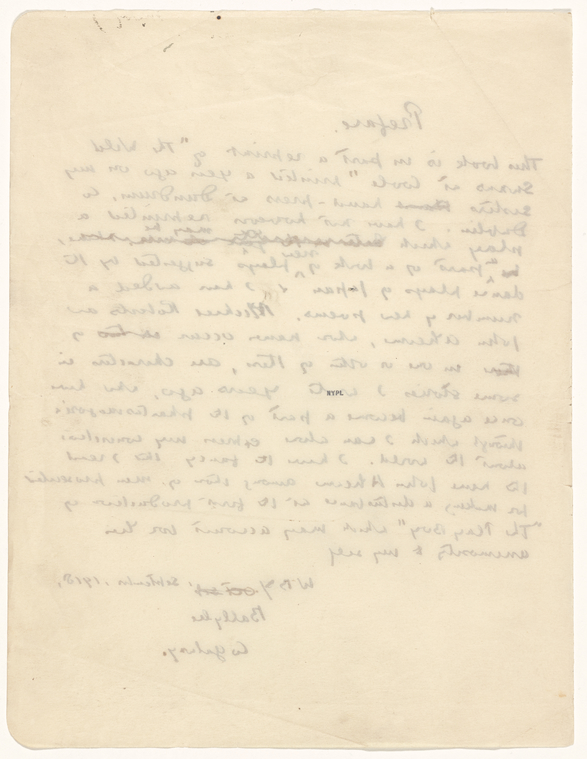 Preface.
This book is in part a reprint of "The Wild
Swans at Coole" printed a year ago on my
sister's hand-press at Dundrum, Co
Dublin. I have not however reprinted a
play which may be
a part of a book of new plays suggested by the
dance plays of Japan, & I have added a
number of new poems. Michael Robartes and
John Aherne, whose names occur
in one or other of these, are characters in
some stories I wrote years ago, who have
once again become a part of the phantasmagoria
through which I can alone express my convictions
about the world. I have the fancy that I read
the name John Aherne among those of men prosecuted
for making a disturbance at the first production of
"The Play Boy" which may account for his
animosity to my self
W B Y September 1918.
Ballylee
Co Galway.
NYPL